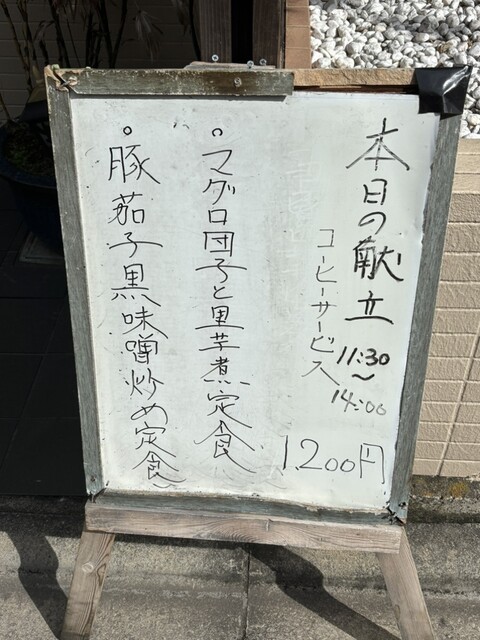 本日の献立
11:30
〜
14:00
コーヒーサービス
1200円
。マグロ団子と里芋煮定食
。豚茄子黒味噌炒め定食